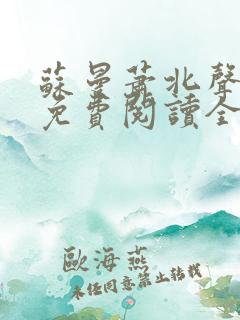 蘇曼蕭北聲
免費閱讀全
歐海燕
未經同意禁止轉載